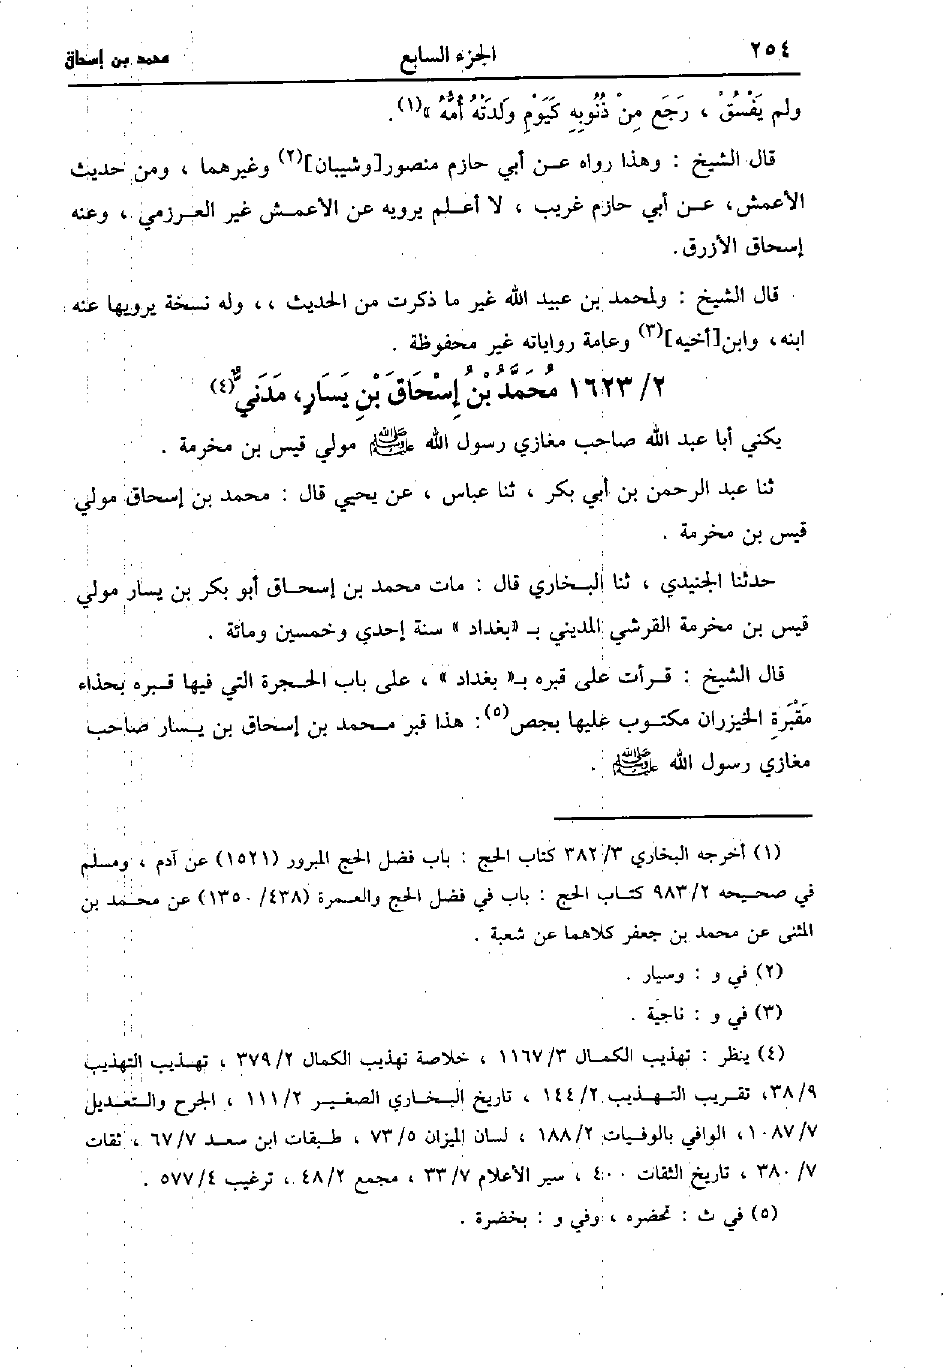 ٢٥٤ الجزء السابع محمد بن إسحاق
ولم يَفْسُقْ ، رَجَع مِنْ ذُنُوبِهِ كَيَوْمِ وَلَدَتْهُ أُمُّهُ »(١).
قال الشيخ : وهذا رواه عـن أبي حازم منصور[وشيبان](٢) وغيرهما ، ومن حديث
الأعمش، عـن أبي حازم غريب ، لا أعـلم يرويه عن الأعمـش غير العـرزمي ، وعنه
إسحاق الأزرق.
قال الشيخ : ولمحمد بن عبيد الله غير ما ذكرت من الحديث ،، وله نسخة يرويها عنه
ابنه، وابن[أخيه](٣) وعامة رواياته غير محفوظة .
١٦٢٣/٢ مُحَمَّدُ بْنُ إِسْحَاقَ بْنِ يَسَارٍ، مَدَنيٌّ(٤)
يكني أبا عبد الله صاحب مغازي رسول الله ﷺ مولي قيس بن مخرمة .
ثنا عبد الرحمن بن أبي بكر ، ثنا عباس ، عن يحيي قال : محمد بن إسحاق مولي
قيس بن مخرمة .
حدثنا الجنيدي ، ثنا البـخاري قال : مات محمد بن إسحـاق أبو بكر بن يسار مولي
قيس بن مخرمة القرشي المديني بـ «بغداد » سنة إحدي وخمسين ومائة .
قال الشيخ : قـرأت على قبره بـ« بغداد » ، على باب الحـجرة التي فيها قـبره بحذاء
مَقْبَرَةِ الخيزران مكتـوب عليها بجص(٥): هذا قبر مـحمد بن إسحاق بن يـسار صاحب
مغازي رسول الله ﷺ .
(١) أخرجه البخاري ٣٨٢/٣ كتاب الحج : باب فضل الحج المبرور (١٥٢١) عن آدم ، ومسلم
في صحيحه ٩٨٣/٢ كتـاب الحج : باب في فضل الحج والعـمرة (١٣٥٠/٤٣٨) عن محـمد بن
المثنى عن محمد بن جعفر كلاهما عن شعبة .
(٢) في و : وسيار .
(٣) في و : ناجية .
(٤) ينظر : تهذيب الكمـال ١١٦٧/٣ ، خلاصة تهذيب الكمال ٣٧٩/٢ ، تهـذيب التهذيب
٣٨/٩، تقـريب التهـذيب ١٤٤/٢ ، تاريخ البـخاري الصغيـر ١١١/٢ ، الجرح والتـعديل
١٠٨٧/٧، الوافي بالوفيات ١٨٨/٢ ، لسان الميزان ٧٣/٥ ، طبقات ابن سعد ٦٧/٧ ، ثقات
٣٨٠/٧ ، تاريخ الثقات ٤٠٠ ، سير الأعلام ٣٣/٧ ، مجمع ٤٨/٢ ، ترغيب ٥٧٧/٤ .
(٥) في ث : تحضره ، وفي و : بخضرة .